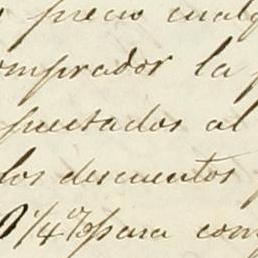 precio cualq
omprador la
puestados al
los descuentos
0 1/4 % para com